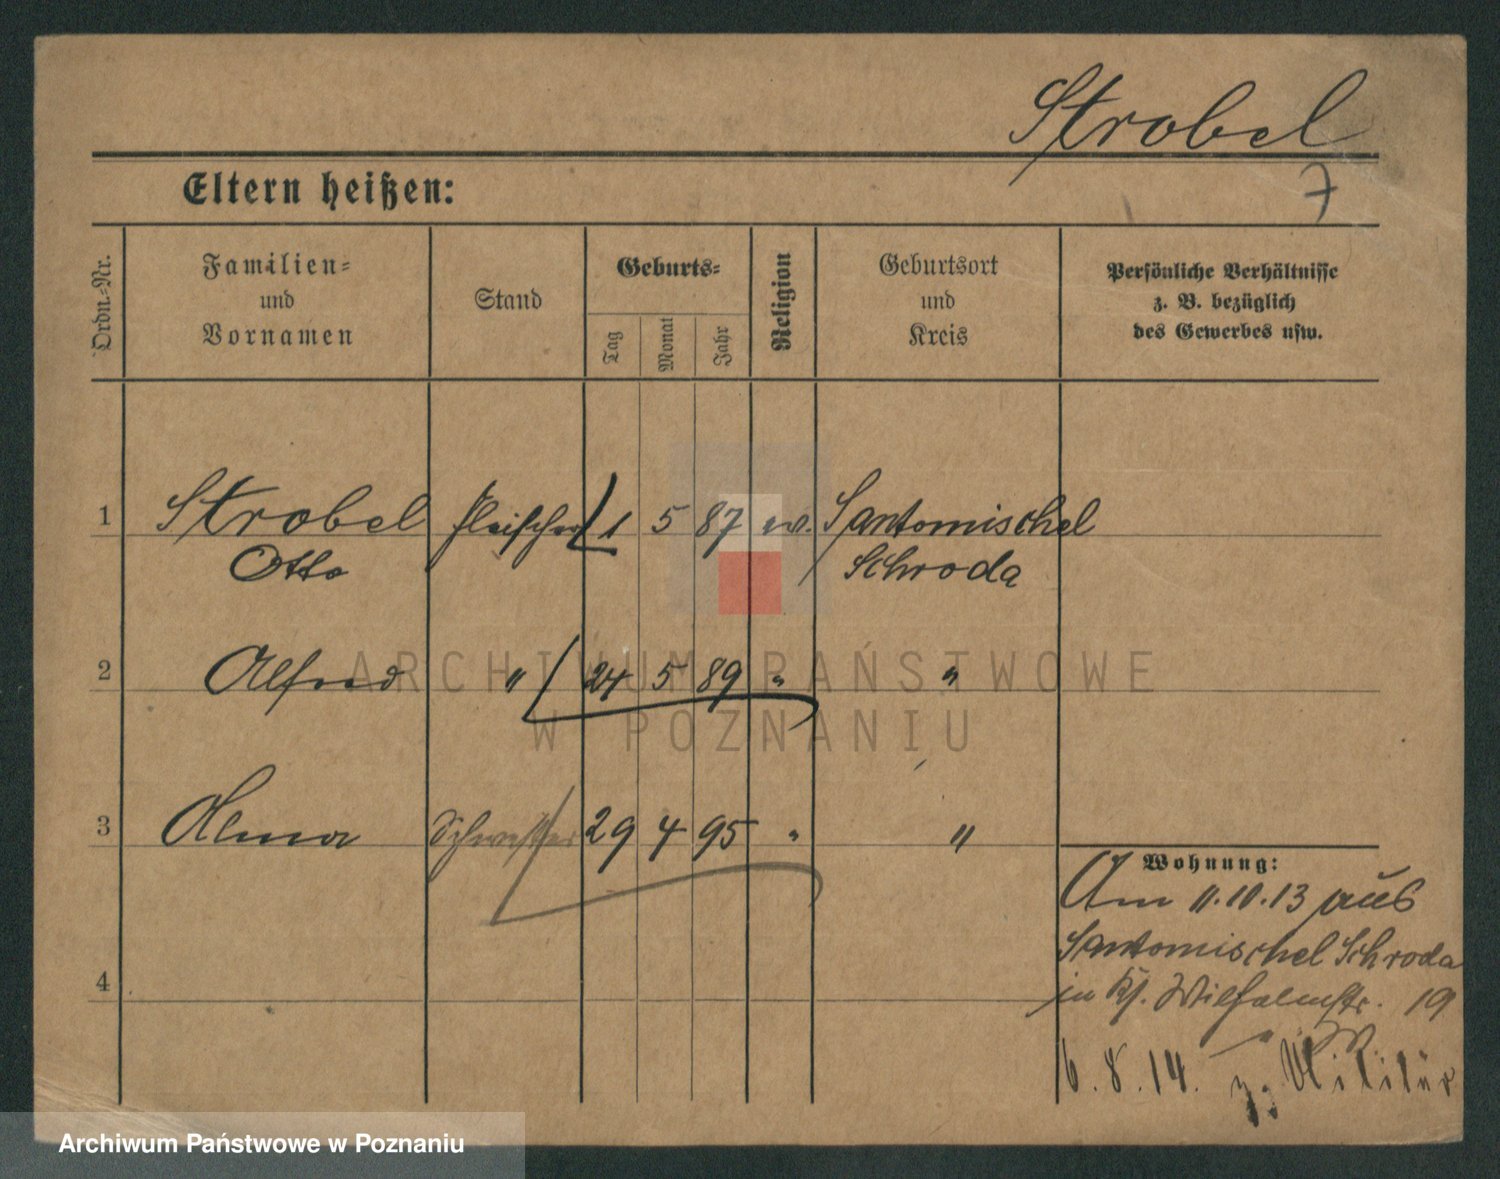 Strobel
7
Eltern heißen:
Ordn.-Nr.
Familien-
und
Vornamen
Stand
Geburts-
Tag
Monat
Jahr
Religion
Geburtsort
und
Kreis
Persönliche Verhältnisse
z. B. bezüglich
des Gewerbes usw.
1 Strobel Fleischer 1 5 87 ev. Santomischel
Otto Schroda
2 Alfred " 24 5 89 " "
3 Alma Schwester 29 4 95 " "
4
Wohnung:
Am 11.10.13 aus
Santomischel Schroda
in Wilhelmstr. 19
6.8.14. z. Militär
ARCHIWUM PAŃSTWOWE
W POZNANIU
Archiwum Państwowe w Poznaniu